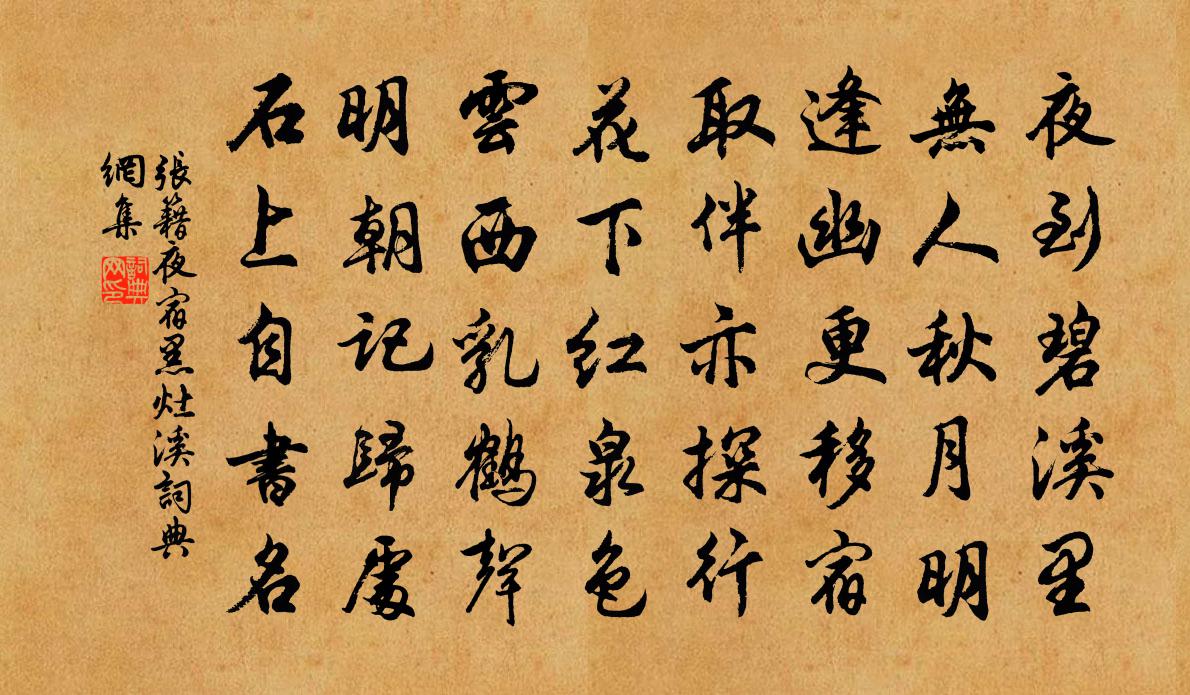 夜到碧溪里
無人秋月明
逢幽更移宿
取伴亦探行
花下红泉色
雲西乳鶴聲
明朝記歸處
石上自書名
張籍夜宿黑灶溪詞典
網集
詞典
网印